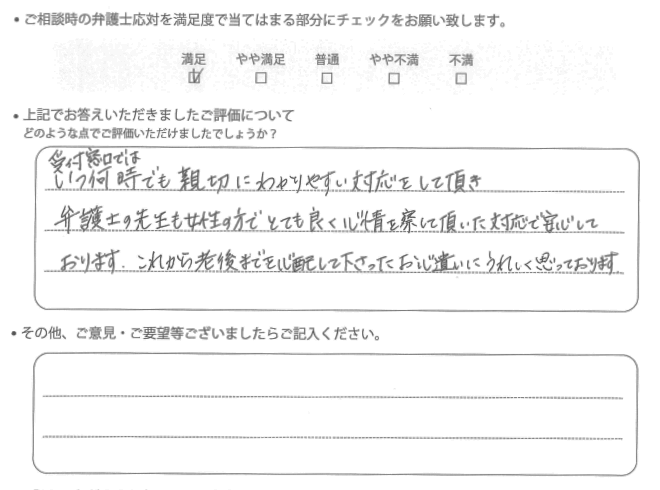 • ご相談時の弁護士応対を満足度で当てはまる部分にチェックをお願い致します。
満足 やや満足 普通 やや不満 不満
• 上記でお答えいただきましたご評価について
どのような点でご評価いただけましたでしょうか？
受付窓口では
いつ何時でも親切にわかりやすい対応をして頂き
弁護士の先生も女性の方でとても良く心情を察して頂いた対応で安心して
おります. これから老後までを心配して下さったお心遣いにうれしく思っております.
• その他、ご意見・ご要望等ございましたらご記入ください。